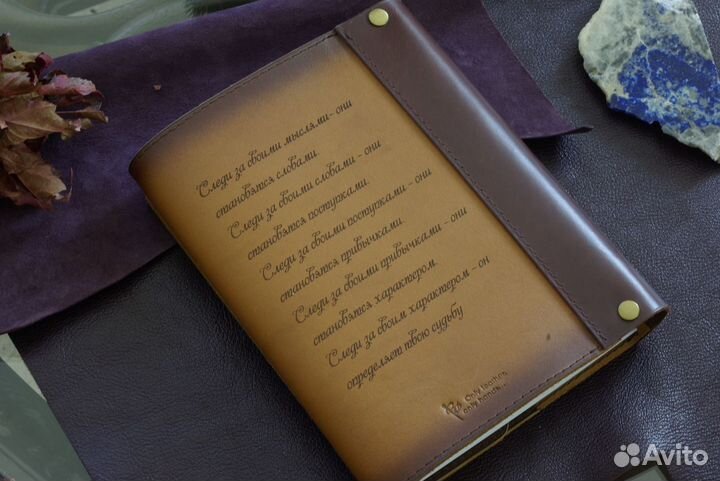 Следи за своими мыслями- они
становятся словами.
Следи за своими словами - они
становятся поступками.
Следи за своими поступками - они
становятся привычками.
Следи за своими привычками - они
становятся характером.
Следи за своим характером - он
определяет твою судьбу
Only leather,
only hands...
Avito